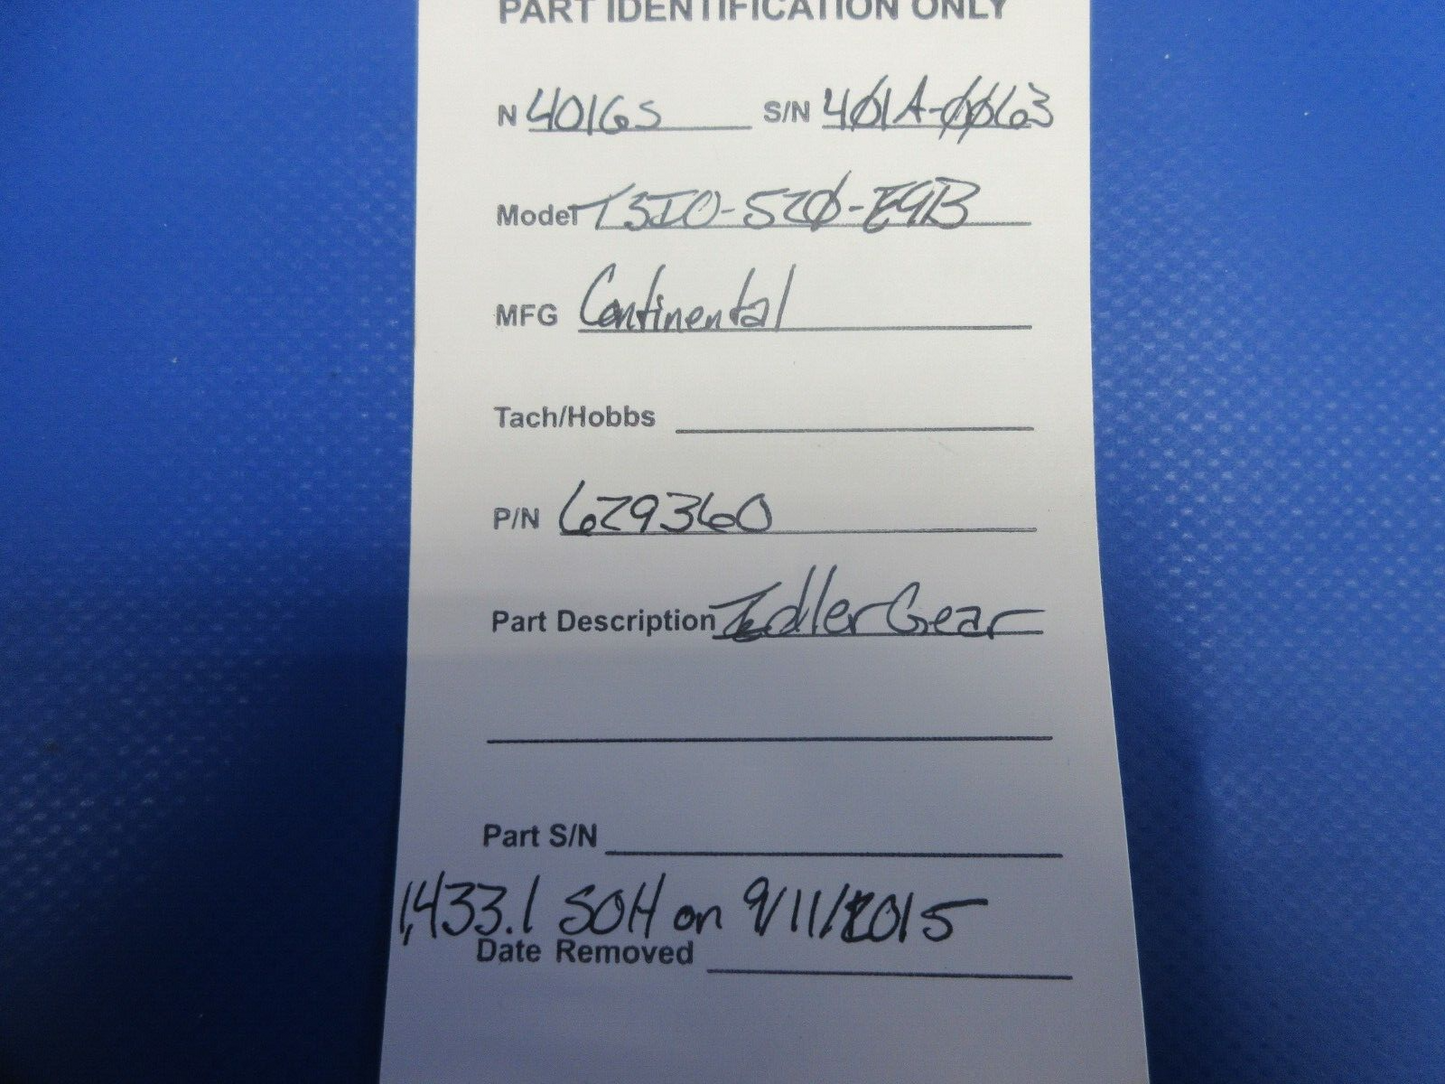 PART IDENTIFICATION ONLY
N 4016S S/N 401A-0063
Model TSIO-520-E9B
MFG Continental
Tach/Hobbs
P/N 629360
Part Description Idler Gear
Part S/N
1,433.1 SOH on 9/11/2015
Date Removed